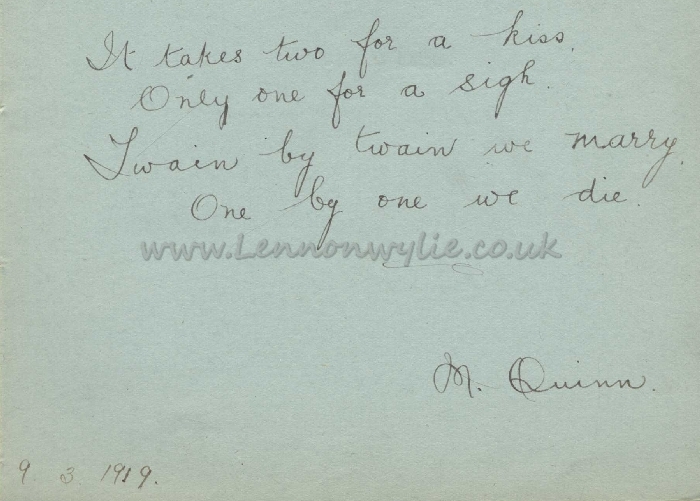 It takes two for a kiss.
Only one for a sigh.
Twain by twain we marry
One by one we die.
www.Lennonwylie.co.uk
M. Quinn.
9 3 1919.